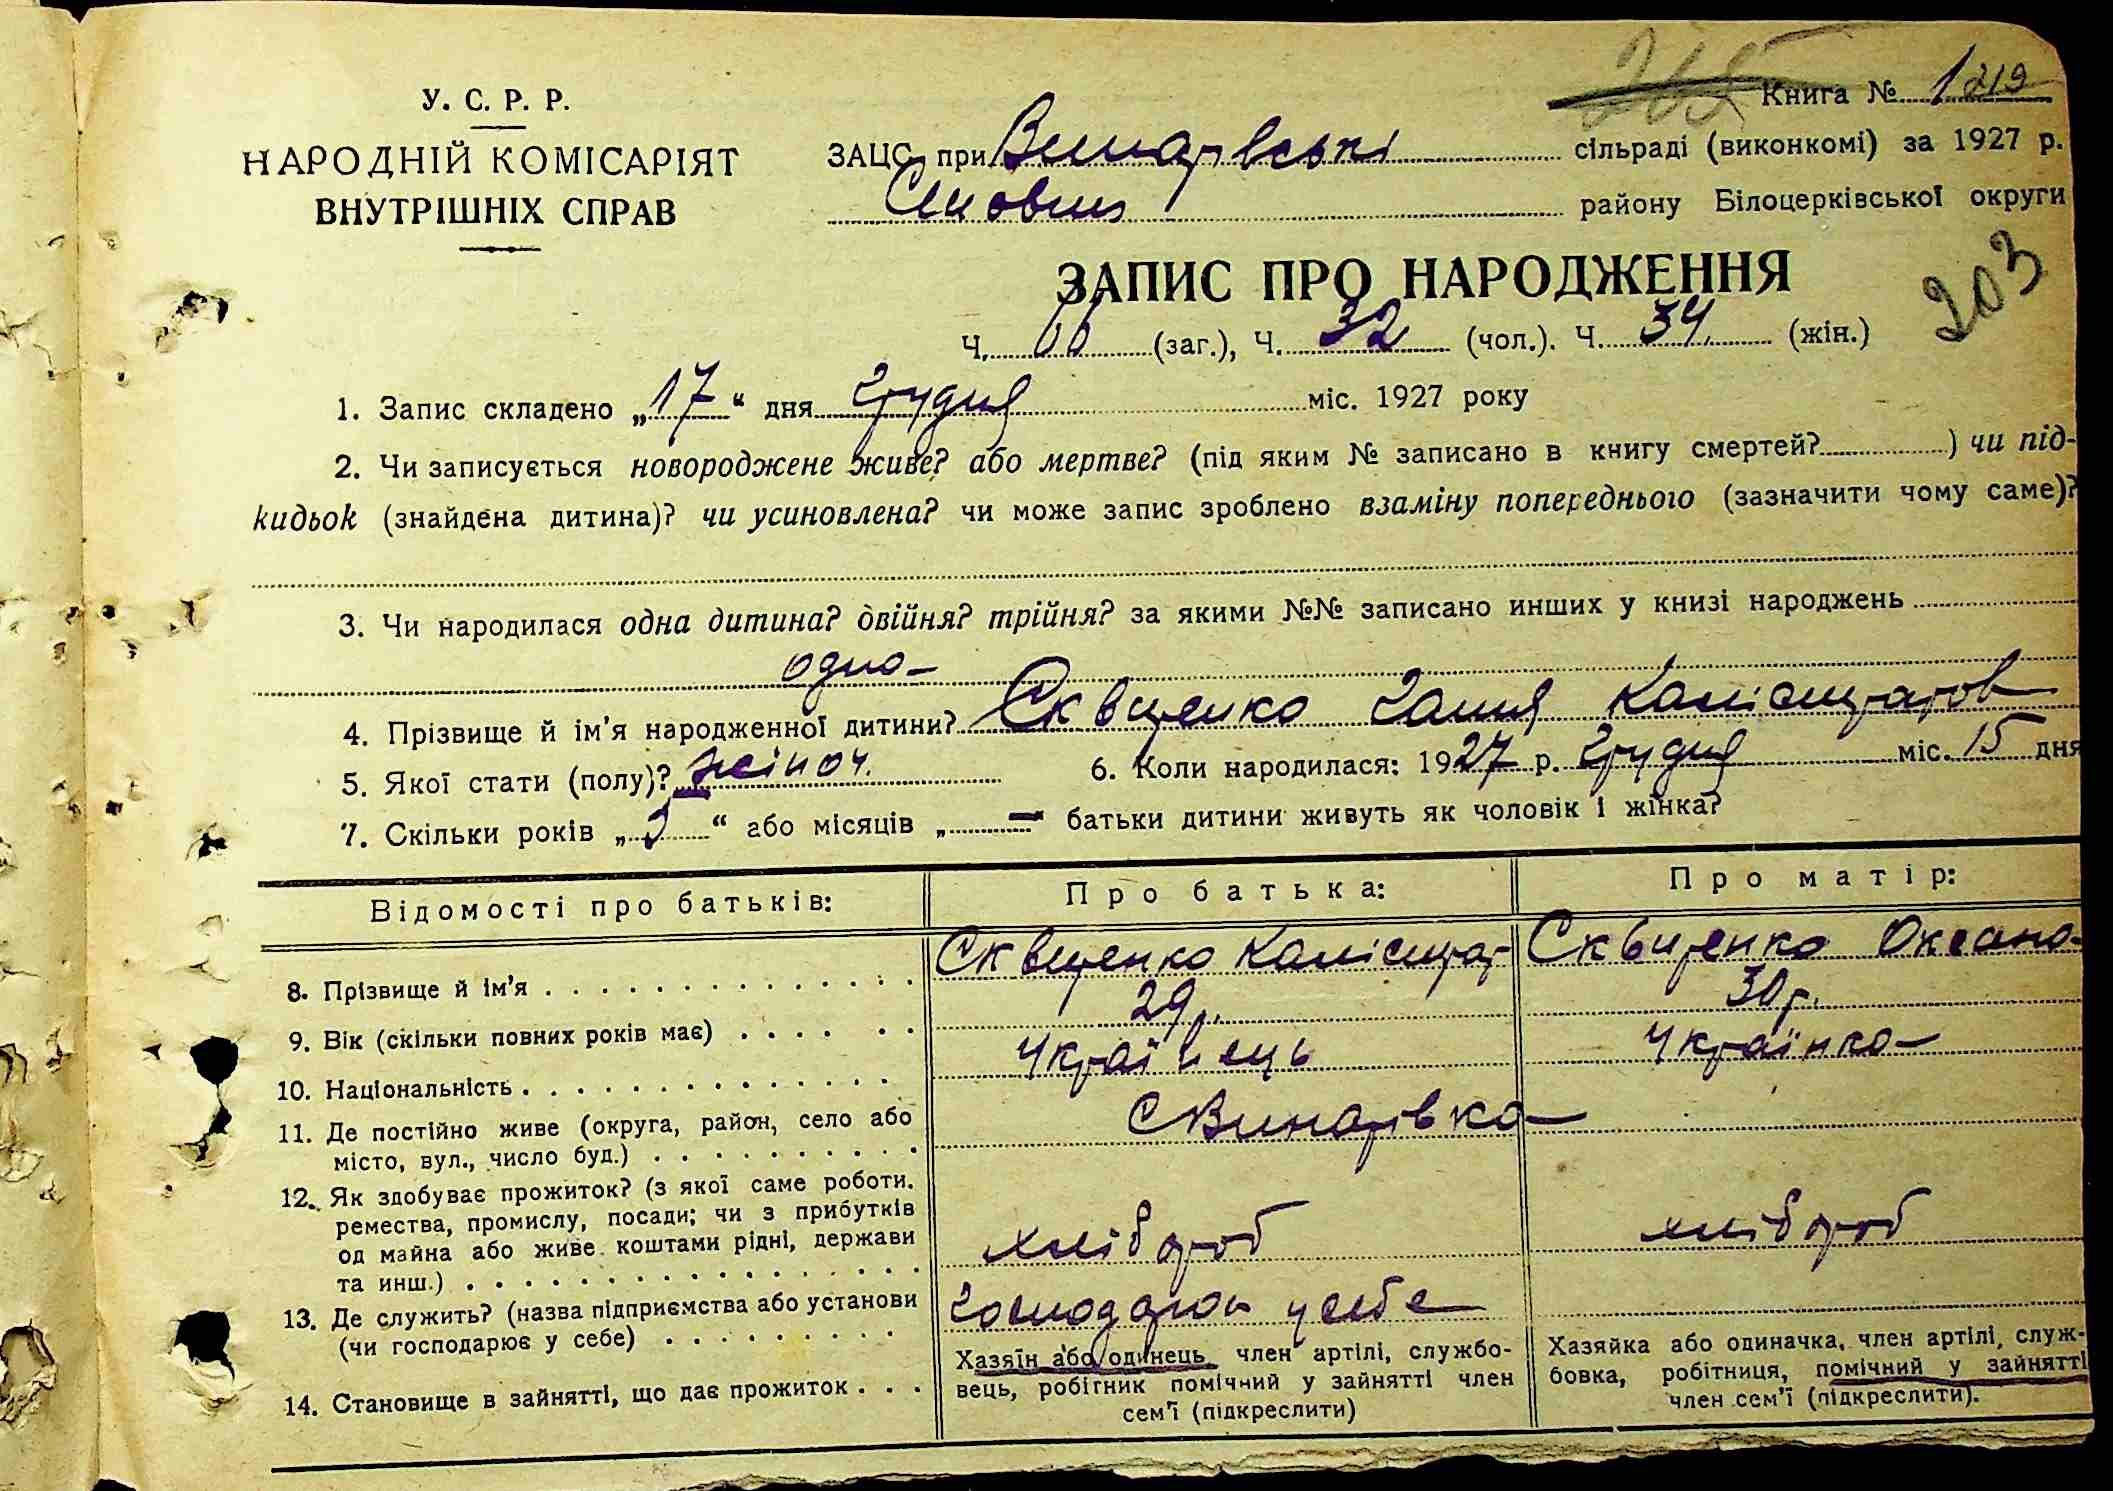 У. С. Р. Р.
НАРОДНІЙ КОМІСАРІЯТ
ВНУТРІШНІХ СПРАВ
Книга № 1 219
ЗАЦС при Винарівські сільраді (виконкомі) за 1927 р.
району Білоцерківської округи
203
ЗАПИС ПРО НАРОДЖЕННЯ
Ч. 66 (заг.), Ч. 32 (чол.). Ч. 34 (жін.)
1. Запис складено „17“ дня грудня міс. 1927 року
2. Чи записується новороджене живе? або мертве? (під яким № записано в книгу смертей? ) чи під-
кидьок (знайдена дитина)? чи усиновлена? чи може запис зроблено взаміну попереднього (зазначити чому саме)?
3. Чи народилася одна дитина? двійня? трійня? за якими №№ записано инших у книзі народжень
одна
4. Прізвище й ім'я народженної дитини? Сквиренко Ганя Калістратов
5. Якої стати (полу)? жіноч. 6. Коли народилася: 1927 р. грудня міс. 15 дня
7. Скільки років „ “ або місяців „—“ батьки дитини живуть як чоловік і жінка?
Відомості про батьків: Про батька: Про матір:
8. Прізвище й ім'я . . . Сквиренко Калістрат Сквиренко Оксана
9. Вік (скільки повних років має) . . . 29 р. 30 р.
10. Національність . . . Українець Українка
11. Де постійно живе (округа, район, село або
місто, вул., число буд.) . . . с Винарівка
12. Як здобуває прожиток? (з якої саме роботи.
ремества, промислу, посади; чи з прибутків
од майна або живе коштами рідні, держави
та инш.) . . . хлібороб хлібороб
13. Де служить? (назва підприємства або установи
(чи господарює у себе) . . . господарює у себе
14. Становище в зайнятті, що дає прожиток . . .
Хазяїн або одинець, член артілі, службо-
вець, робітник помічний у зайнятті член
сем'ї (підкреслити)
Хазяйка або одиначка, член артілі, служ-
бовка, робітниця, помічний у зайнятті
член сем'ї (підкреслити).